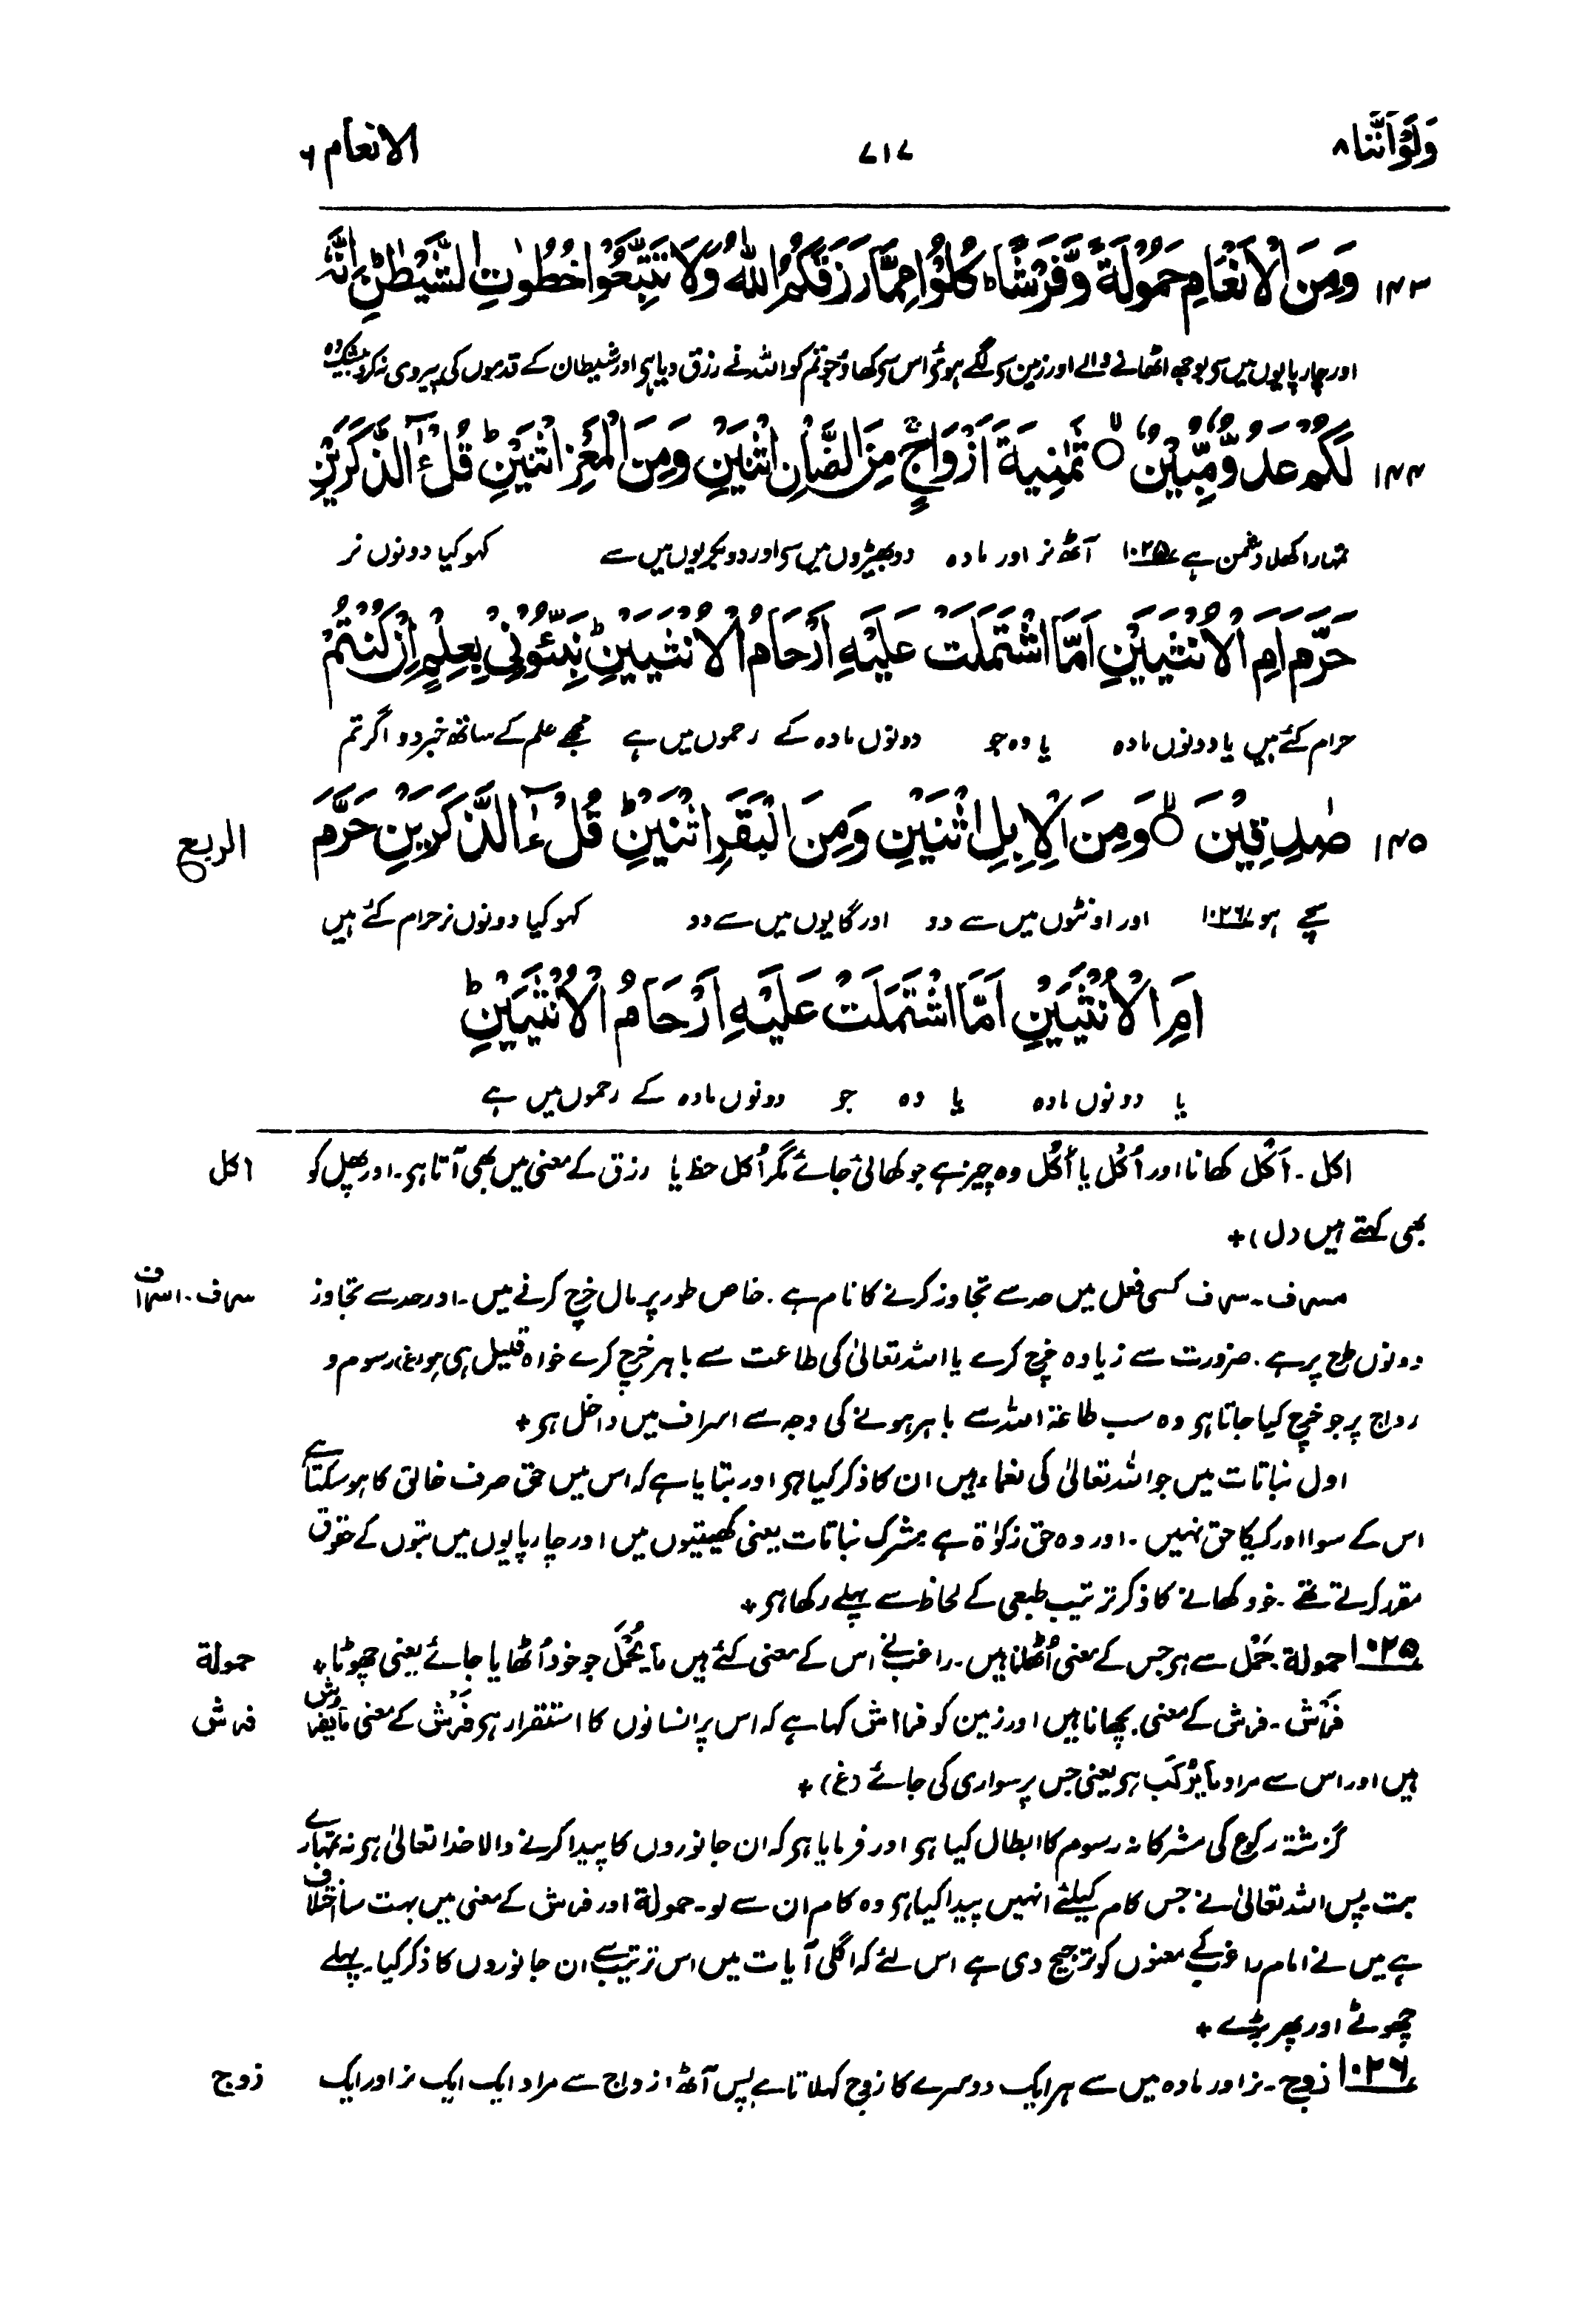 ولواننا ۸ ۷۱۷ الانعام ۶
۱۴۳ وَمِنَ الْاَنْعَامِ حَمُوْلَةً وَّفَرْشًا ؕ كُلُوْا مِمَّا رَزَقَكُمُ اللّٰهُ وَلَا تَتَّبِعُوْا خُطُوٰتِ الشَّيْطٰنِ ؕ اِنَّهٗ
اور چارپایوں میں سے بوجھ اٹھانے والے اور زمین سے لگے ہوئے اس سے کھاؤ جو تم کو اللہ نے رزق دیا ہے اور شیطان کے قدموں کی پیروی نہ کرو بیشک وہ
۱۴۴ لَكُمْ عَدُوٌّ مُّبِيْنٌ ۙ ثَمٰنِيَةَ اَزْوَاجٍ ۚ مِنَ الضَّاْنِ اثْنَيْنِ وَمِنَ الْمَعْزِ اثْنَيْنِ ؕ قُلْ ءٰٓالذَّكَرَيْنِ
تمہارا کھلا دشمن ہے ۱۰۲۵ آٹھ نر اور مادہ دو بھیڑوں میں سے اور دو بکریوں میں سے کہو کیا دونوں نر
حَرَّمَ اَمِ الْاُنْثَيَيْنِ اَمَّا اشْتَمَلَتْ عَلَيْهِ اَرْحَامُ الْاُنْثَيَيْنِ ؕ نَبِّـُٔوْنِيْ بِعِلْمٍ اِنْ كُنْتُمْ
حرام کئے ہیں یا دونوں مادہ یا وہ جو دونوں مادہ کے رحموں میں ہے مجھے علم کے ساتھ خبر دو اگر تم
۱۴۵ صٰدِقِيْنَ ۙ وَمِنَ الْاِبِلِ اثْنَيْنِ وَمِنَ الْبَقَرِ اثْنَيْنِ ؕ قُلْ ءٰٓالذَّكَرَيْنِ حَرَّمَ الربع
سچے ہو ۱۰۲۶ اور اونٹوں میں سے دو اور گایوں میں سے دو کہو کیا دونوں نر حرام کئے ہیں
اَمِ الْاُنْثَيَيْنِ اَمَّا اشْتَمَلَتْ عَلَيْهِ اَرْحَامُ الْاُنْثَيَيْنِ ؕ
یا دونوں مادہ یا وہ جو دونوں مادہ کے رحموں میں ہے
اکل ۔ اَکْل کھانا اور اُکْل یا اُکُل وہ چیز ہے جو کھائی جائے مگر اُکُل حظ یا رزق کے معنی میں بھی آتا ہے ۔ اور پھل کو اکل
بھی کہتے ہیں (ل) +
مسرف ۔ سرف کسی فعل میں حد سے تجاوز کرنے کا نام ہے ۔ خاص طور پر مال خرچ کرنے میں ۔ اور حد سے تجاوز سرف ۔ اسراف
دونوں طرح پر ہے ۔ ضرورت سے زیادہ خرچ کرے یا اللہ تعالیٰ کی طاعت سے باہر خرچ کرے خواہ قلیل ہی ہو (غ) رسوم و
رواج پر جو خرچ کیا جاتا ہے وہ سب طاعۃ اللہ سے باہر ہونے کی وجہ سے اسراف میں داخل ہے +
اول نباتات میں جو اللہ تعالیٰ کی نعماء ہیں ان کا ذکر کیا ہے اور بتایا ہے کہ اس میں حق صرف خالق کا ہو سکتا ہے
اس کے سوا اور کسی کا حق نہیں ۔ اور وہ حق زکوٰۃ ہے مشرک نباتات یعنی کھیتیوں میں اور چارپایوں میں بتوں کے حقوق
مقرر کرتے تھے ۔ خود کھانے کا ذکر ترتیب طبعی کے لحاظ سے پہلے رکھا ہے +
۱۰۲۵ حمولة ۔ حَمْل سے ہے جس کے معنی اُٹھانا ہیں ۔ راغب نے اس کے معنی کئے ہیں مَا یُحْمَل جو خود اُٹھایا جائے یعنی چھوٹا + حمولة
فَرْش ۔ فرش کے معنی بچھانا ہیں اور زمین کو فراش کہا ہے کہ اس پر انسانوں کا استقرار ہے فَرْش کے معنی مایفرش فرش
ہیں اور اس سے مراد مَا یُرْکَب ہے یعنی جس پر سواری کی جائے (غ) +
گزشتہ رکوع کی مشرکانہ رسوم کا ابطال کیا ہے اور فرمایا ہے کہ ان جانوروں کا پیدا کرنے والا خدا تعالیٰ ہے نہ تمہارے
بت پس اللہ تعالیٰ نے جس کام کیلئے انہیں پیدا کیا ہے وہ کام ان سے لو ۔ حمولة اور فرش کے معنی میں بہت سا اختلاف
ہے میں نے امام راغب کے معنوں کو ترجیح دی ہے اس لئے کہ اگلی آیات میں اس ترتیب سے ان جانوروں کا ذکر کیا ۔ پہلے
چھوٹے اور پھر بڑے +
۱۰۲۶ زوج ۔ نر اور مادہ میں سے ہر ایک دوسرے کا زوج کہلاتا ہے پس آٹھ ازواج سے مراد ایک ایک نر اور ایک زوج